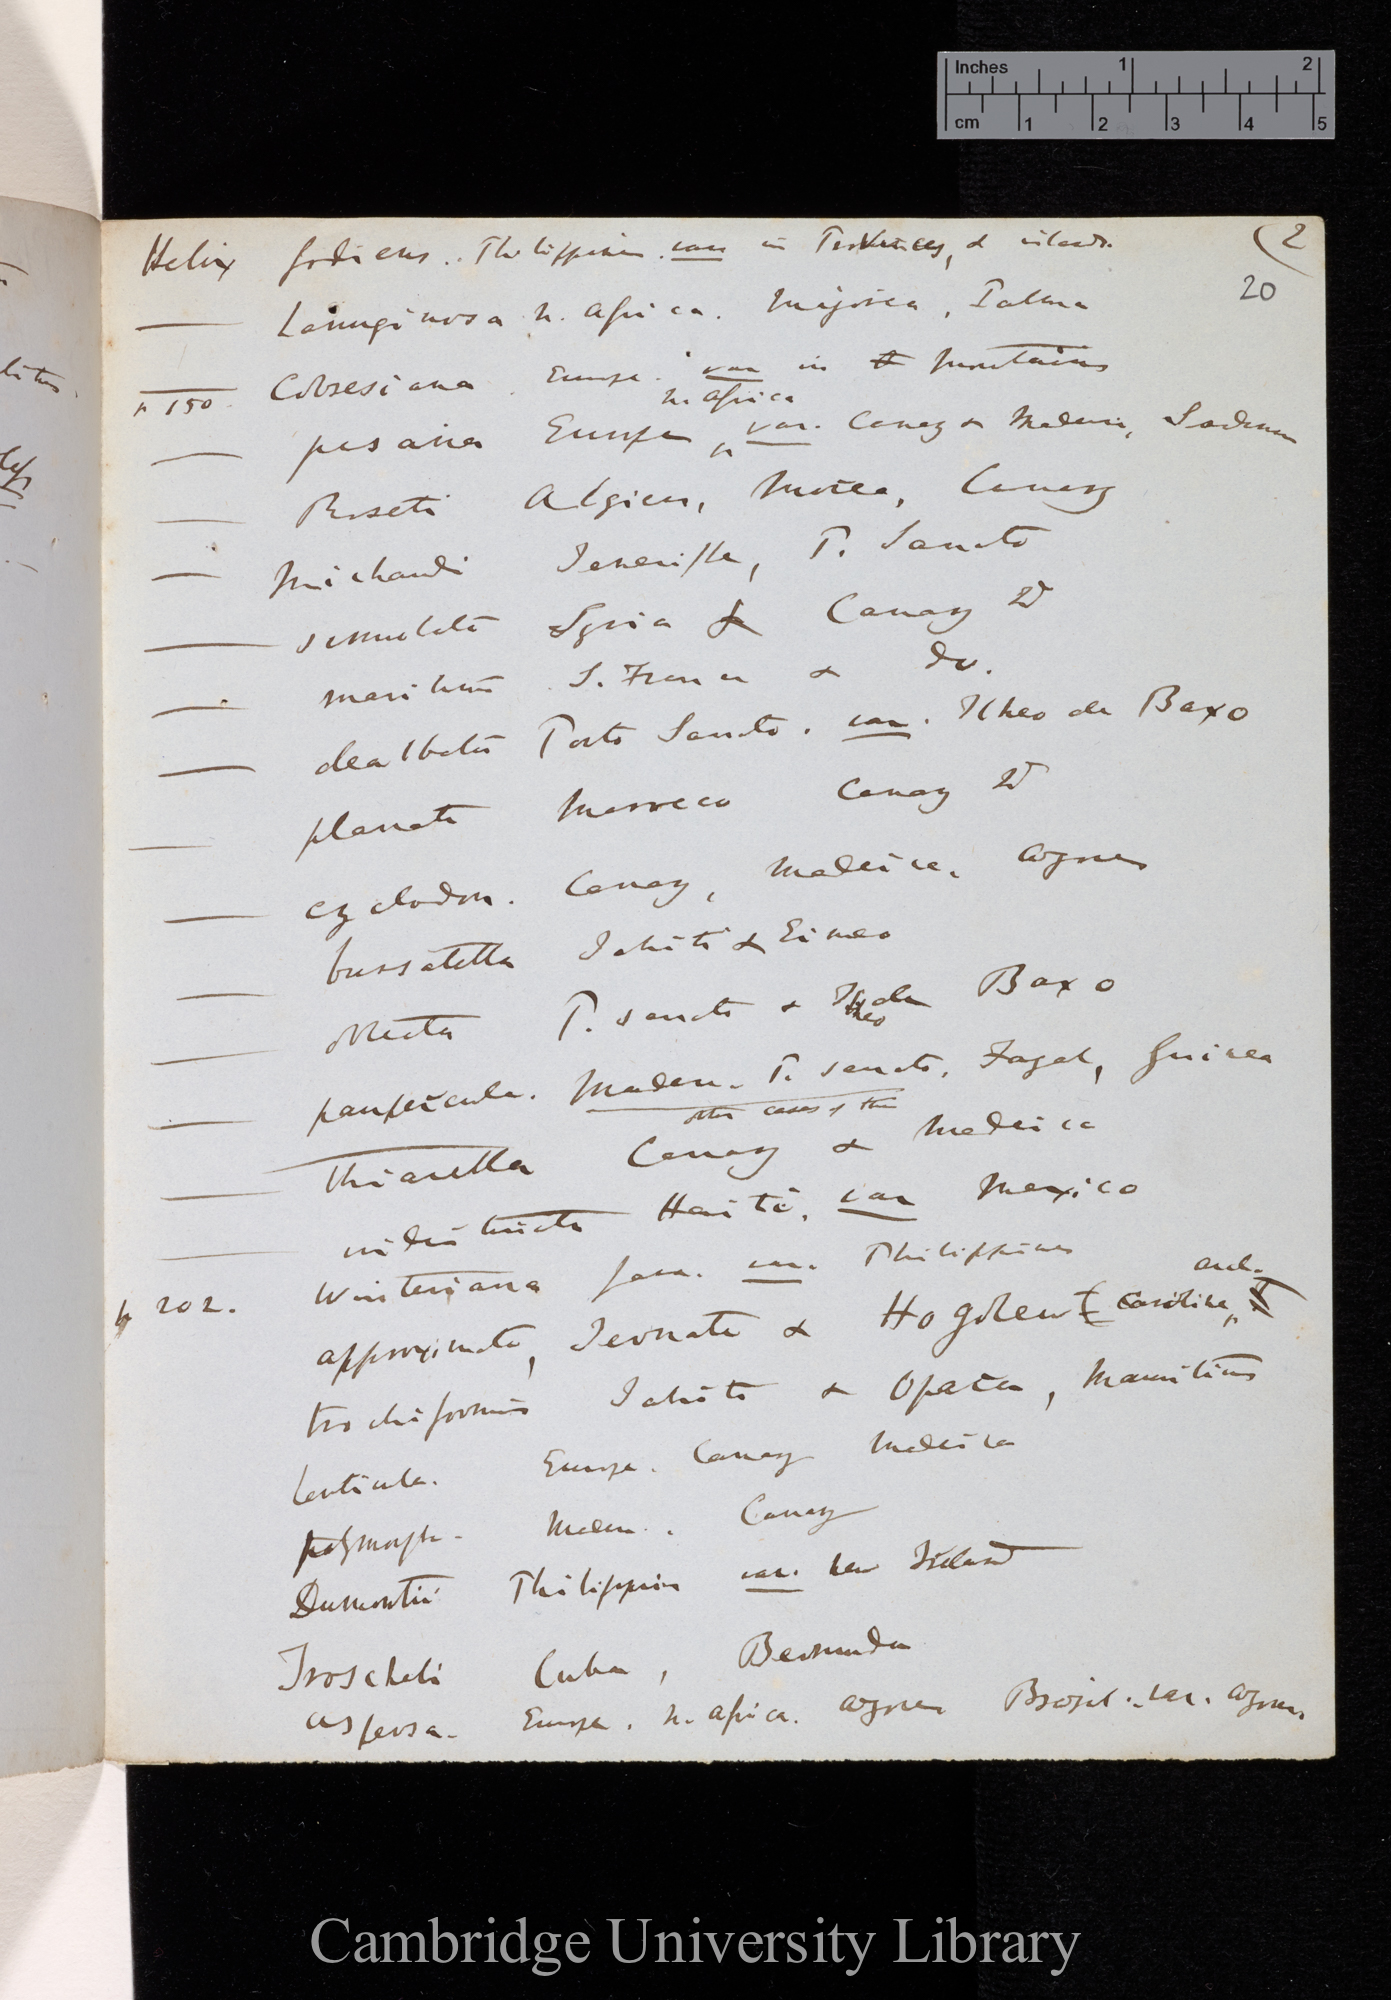 Inches 1 2
cm 1 2 3 4 5
(2
20
Helix fodiens.. Philippines. var in Provinces, & islands.
— Lanuginosa N. Africa. Majorca, Palma
p 150. Cobresiana. Europe. var in mountains
N. Africa
— pisana Europe, var. Canary & Madeira,
— Roseti Algiers, Morea, Canary
— Michaudi Teneriffe, P. Santo
— simulata Syria & Canary Id
— maritima S. France & Do.
— dealbata Porto Santo. var. Ilheo de Baxo
— planata Morocco Canary Id
— cyclodon. Canary, Madeira, Azores
— bursatella Tahiti & Eimeo
— obtecta P. Santo & Ilheo de Baxo
— paupercula. Madeira. P. Santo. Fayal, Guinea
other cases of this
— thiarella Canary & Madeira
— indistincta Haiti, var Mexico
p 202. Winteriana Java. var. Philippines
arch.
approximata, Ternate & Hogoleu [Caroline
trochiformis Tahiti & Opara, Mauritius
lenticula. Europe. Canary Madeira
polymorpha. Madeira. Canary
Dumontii Philippines var. New Ireland
Troscheli Cuba, Bermuda
aspersa. Europe. N. Africa. Azores Brazil. var. Azores,
Cambridge University Library